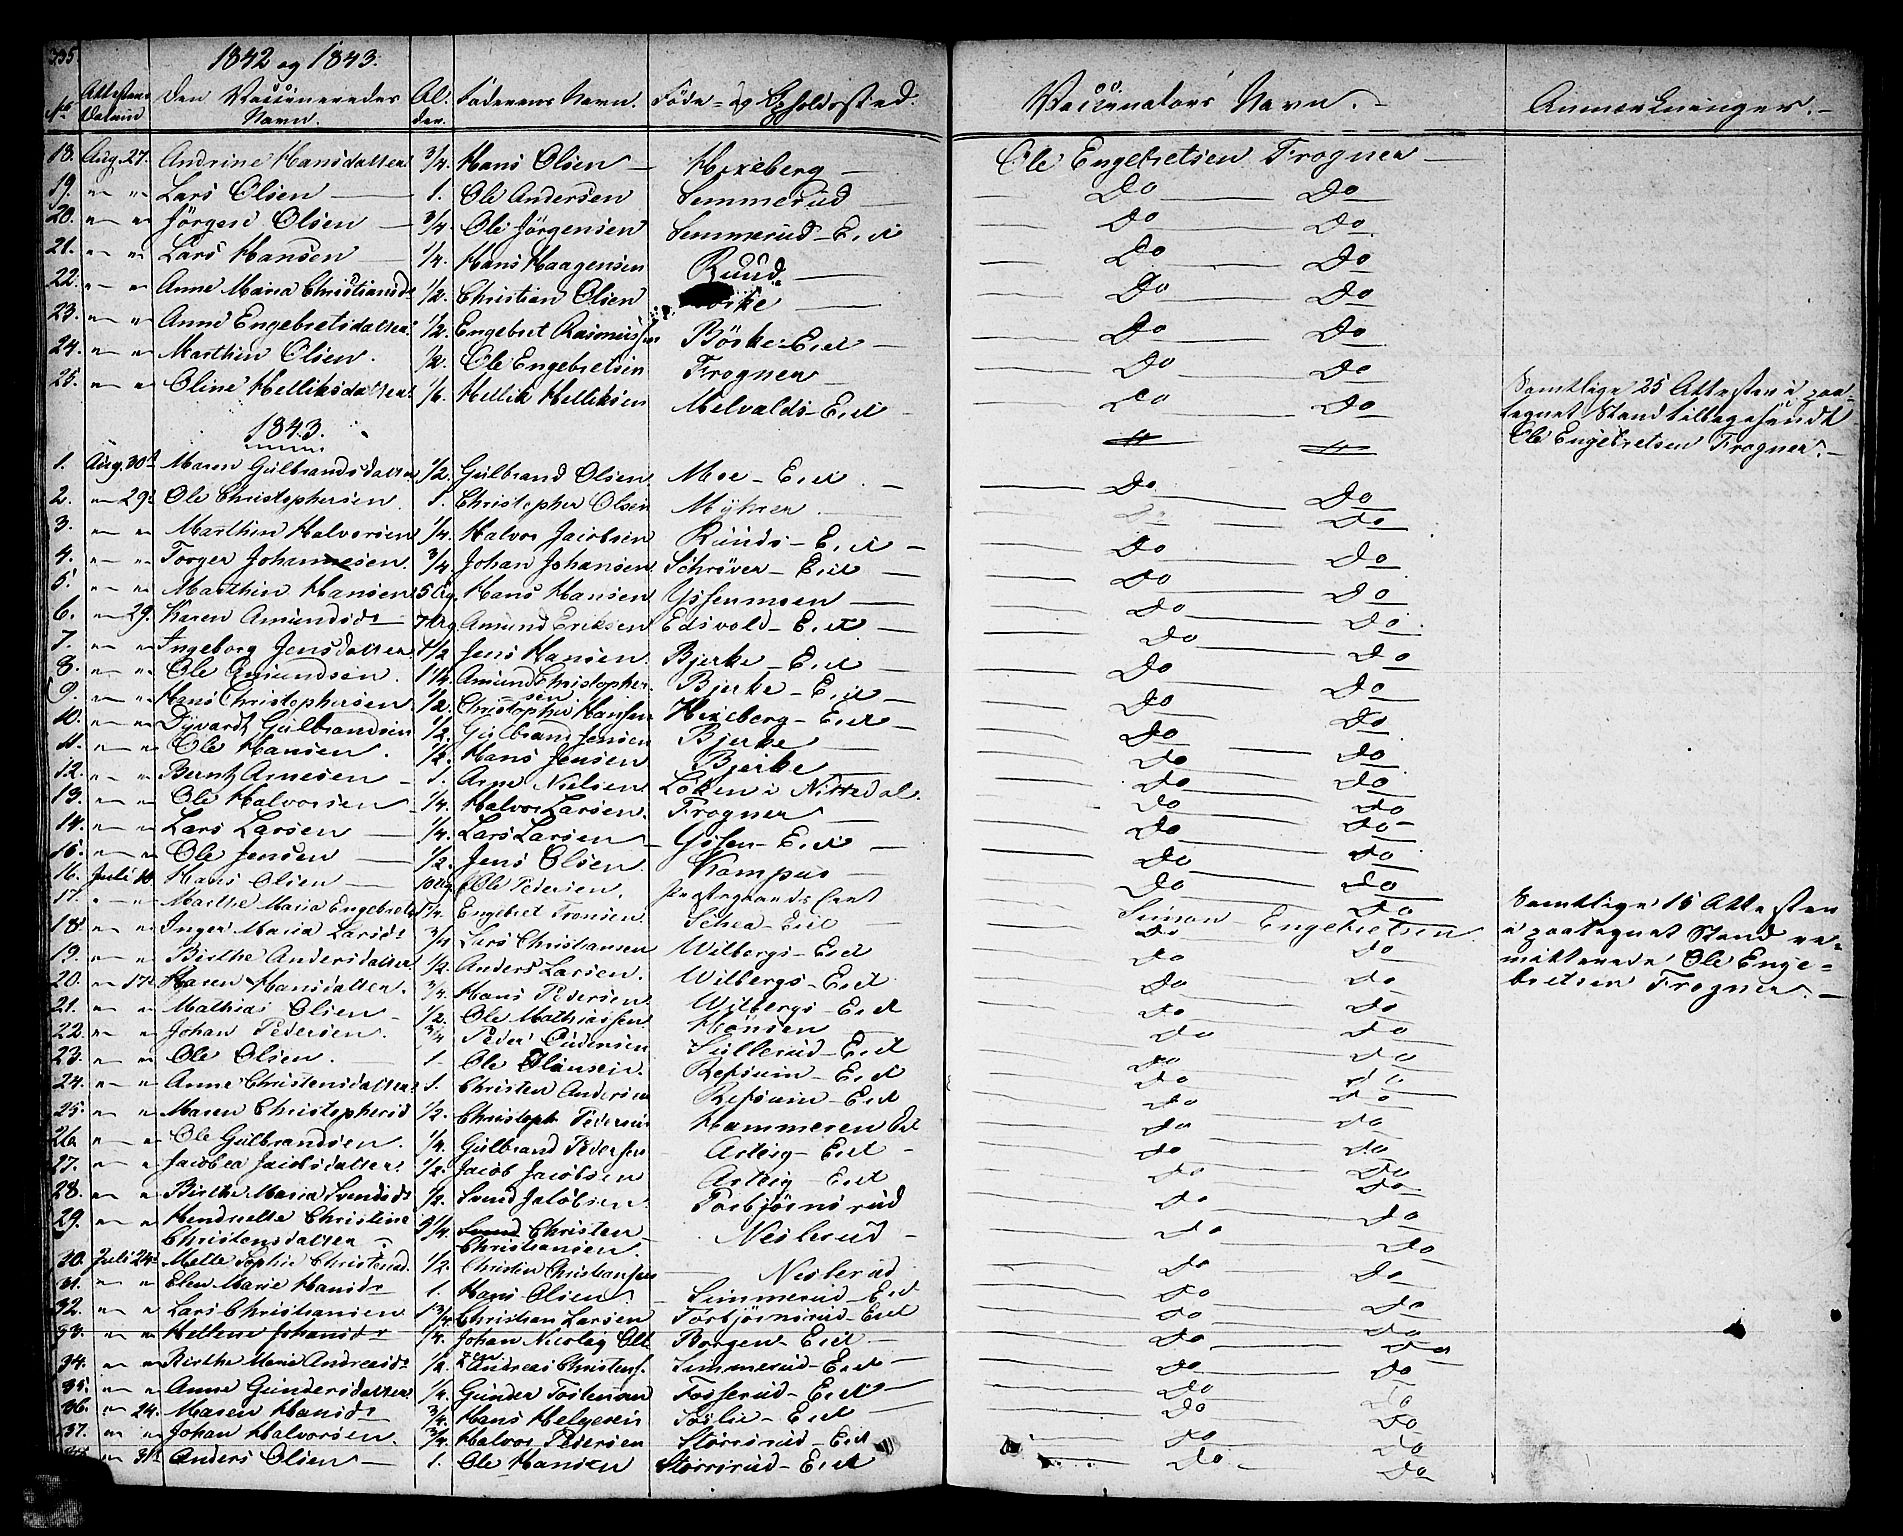 335
1842 og 1843.
No Attestens Datum Den Vaccineredes Navn. Alder. Faderens Navn. Föde- og Opholdssted. Vaccinateurs Navn. Anmærkninger.
18. Aug. 27. Andrine Hansdatter 3/4. Hans Olsen Hexeberg Ole Engebretsen Frogner
19. " " Lars Olsen 1. Ole Andersen Semmerud Do Do
20. " " Jörgen Olsen 3/4. Ole Jörgensen Semmerud-Eiet Do Do
21. " " Lars Hansen 1/4. Hans Haagensen Ruud Do Do
22. " " Anne Maria Christiansd. 1/2. Christian Olsen Do Do
23. " " Anne Engebretsdatter 1/2. Engebret Rasmussen Börke-Eiet Do Do
24. " " Marthin Olsen. 1/2. Ole Engebretsen Frogner Do Do
25. " " Oline Helliksdatter 1/6. Hellik Helliksen Melvalds-Eiet Do Do
Samtlige 25 Attester i paa-
tegnet Stand tilbagesendt
Ole Engebretsen Frogner.
1843.
1. Aug. 30te Maren Gulbrandsdatter 1/2. Gulbrand Olsen Moe-Eiet Do Do
2. " 29. Ole Christophersen 1. Christopher Olsen Myhrer Do Do
3. " " Marthin Halvorsen 1/4. Halvor Jacobsen Ruuds-Eiet Do Do
4. " " Torger Johannesen 3/4. Johan Johansen Schriver-Eiet Do Do
5. " " Marthin Hansen 5 Hans Hansen Do Do
6. " 29. Karen Amundsd. 7 Amund Eriksen Edsvold-Eiet Do Do
7. " " Ingeborg Jensdatter 1/2 Jens Hansen. Bjerke-Eiet Do Do
8. " " Ole Amundsen. 1 1/4. Amund Christophersen Bjerke-Eiet Do Do
9. " " Hans Christophersen 1/2. Christopher Hansen Hexeberg-Eiet Do Do
10. " " Gulbrandsen 1/2. Gulbrand Jensen Bjerke Do Do
11. " " Ole Hansen. 1/2. Hans Jensen Bjerke Do Do
12. " " Berntz Arnesen 1. Arne Nielsen Löken i Nittedal. Do Do
13. " " Ole Halvorsen 1/4. Halvor Larsen Frogner Do Do
14. " " Lars Larsen 1/4. Lars Larsen Do Do
15. " " Ole Jensen 1/2. Jens Olsen Kampus Do Do
16. Juli Hans Olsen 10 Ole Pedersen. Do Do
17. " " Marthe Maria Engebretsd. Engebret Tronsen. Schea-Eiet Simon Engebretsen.
Samtlige 15 Attester
i paategnet Stand re-
mitterede Ole Enge-
bretsen Frogner.
18. " " Inger Maria Larsd. 3/4. Lars Christiansen Wilbergs-Eiet Do Do
19. " " Birthe Andersdatter 1/2. Anders Larsen. Wilbergs-Eiet Do Do
20. " 17. Karen Hansdatter. 3/4. Hans Pedersen Wilbergs-Eiet Do Do
21. " " Mathias Olsen 1/2. Ole Mathiassen Hönsen Do Do
22. " " Johan Pedersen. 3/4 Peder Sullerud-Eiet Do Do
23. " " Ole Olsen. 1 Ole Refsum-Eiet Do Do
24. " " Anne Christensdatter 1. Christen Andersen Refsum-Eiet Do Do
25. " " Maren Christophersd 1/2. Christoph Pedersen Hammeren Eiet Do Do
26. " " Ole Gulbrandsen. 1/4. Gulbrand Pedersen Asteig-Eiet Do Do
27. " " Jacobea Jacobsdatter 1/2. Jacob Jacobsen Asteig-Eiet Do Do
28. " " Birthe Maria Svendsd. 1/2. Svend Jacobsen Torbjörnsrud Do Do
29. " " Hendrette Christine Christensdatter 3/4. Christen Christiansen. Neslerud Do Do
30. Juli 24. Mette Sophie Christensd. 1/2. Christen Christiansen Neslerud Do Do
31. " " Elen Marie Hansd. 1. Hans Olsen. Simmerud-Eiet Do Do
32. " " Lars Christiansen 3/4. Christian Larsen Torbjörnsrud-Eiet Do Do
33. " " Hellene Johansd. 1/4. Johan Nicolay Borgen-Eiet Do Do
34. " " Birthe Marie Andreasd. 1/2. Andreas Christens. Simmerud-Eiet Do Do
35. " " Anne Gundersdatter 1/4. Gunder Tostensen Fosserud-Eiet Do Do
36. " 24. Maren Hansd. 3/4. Hans Helgesen Toslie-Eiet Do Do
37. " " Johan Halvorsen. 3/4. Halvor Pedersen Störrsrud-Eiet Do Do
" 31te Anders Olsen 1. Ole Hansen Störrsrud-Eiet Do Do